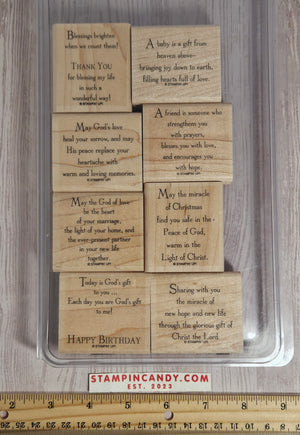 Blessings brighten
when we count them!
THANK YOU
for blessing my life
in such a
wonderful way!
© STAMPIN' UP!
A baby is a gift from
heaven above–
bringing joy down to earth,
filling hearts full of love.
© STAMPIN' UP!
May God's love
heal your sorrow, and may
His peace replace your
heartache with
warm and loving memories.
© STAMPIN' UP!
A friend is someone who
strengthens you
with prayers,
blesses you with love,
and encourages you
with hope.
© STAMPIN' UP!
May the God of love
be the heart
of your marriage,
the light of your home, and
the ever-present partner
in your new life
together.
© STAMPIN' UP!
May the miracle
of Christmas
find you safe in the
Peace of God,
warm in the
Light of Christ.
© STAMPIN' UP!
Today is God's gift
to you ...
Each day you are God's gift
to me!
HAPPY BIRTHDAY
© STAMPIN' UP!
Sharing with you
the miracle of
new hope and new life
through the glorious gift of
Christ the Lord.
© STAMPIN' UP!
STAMPINCANDY.COM
EST. 2023
2 3 4 5 6 7 8 9